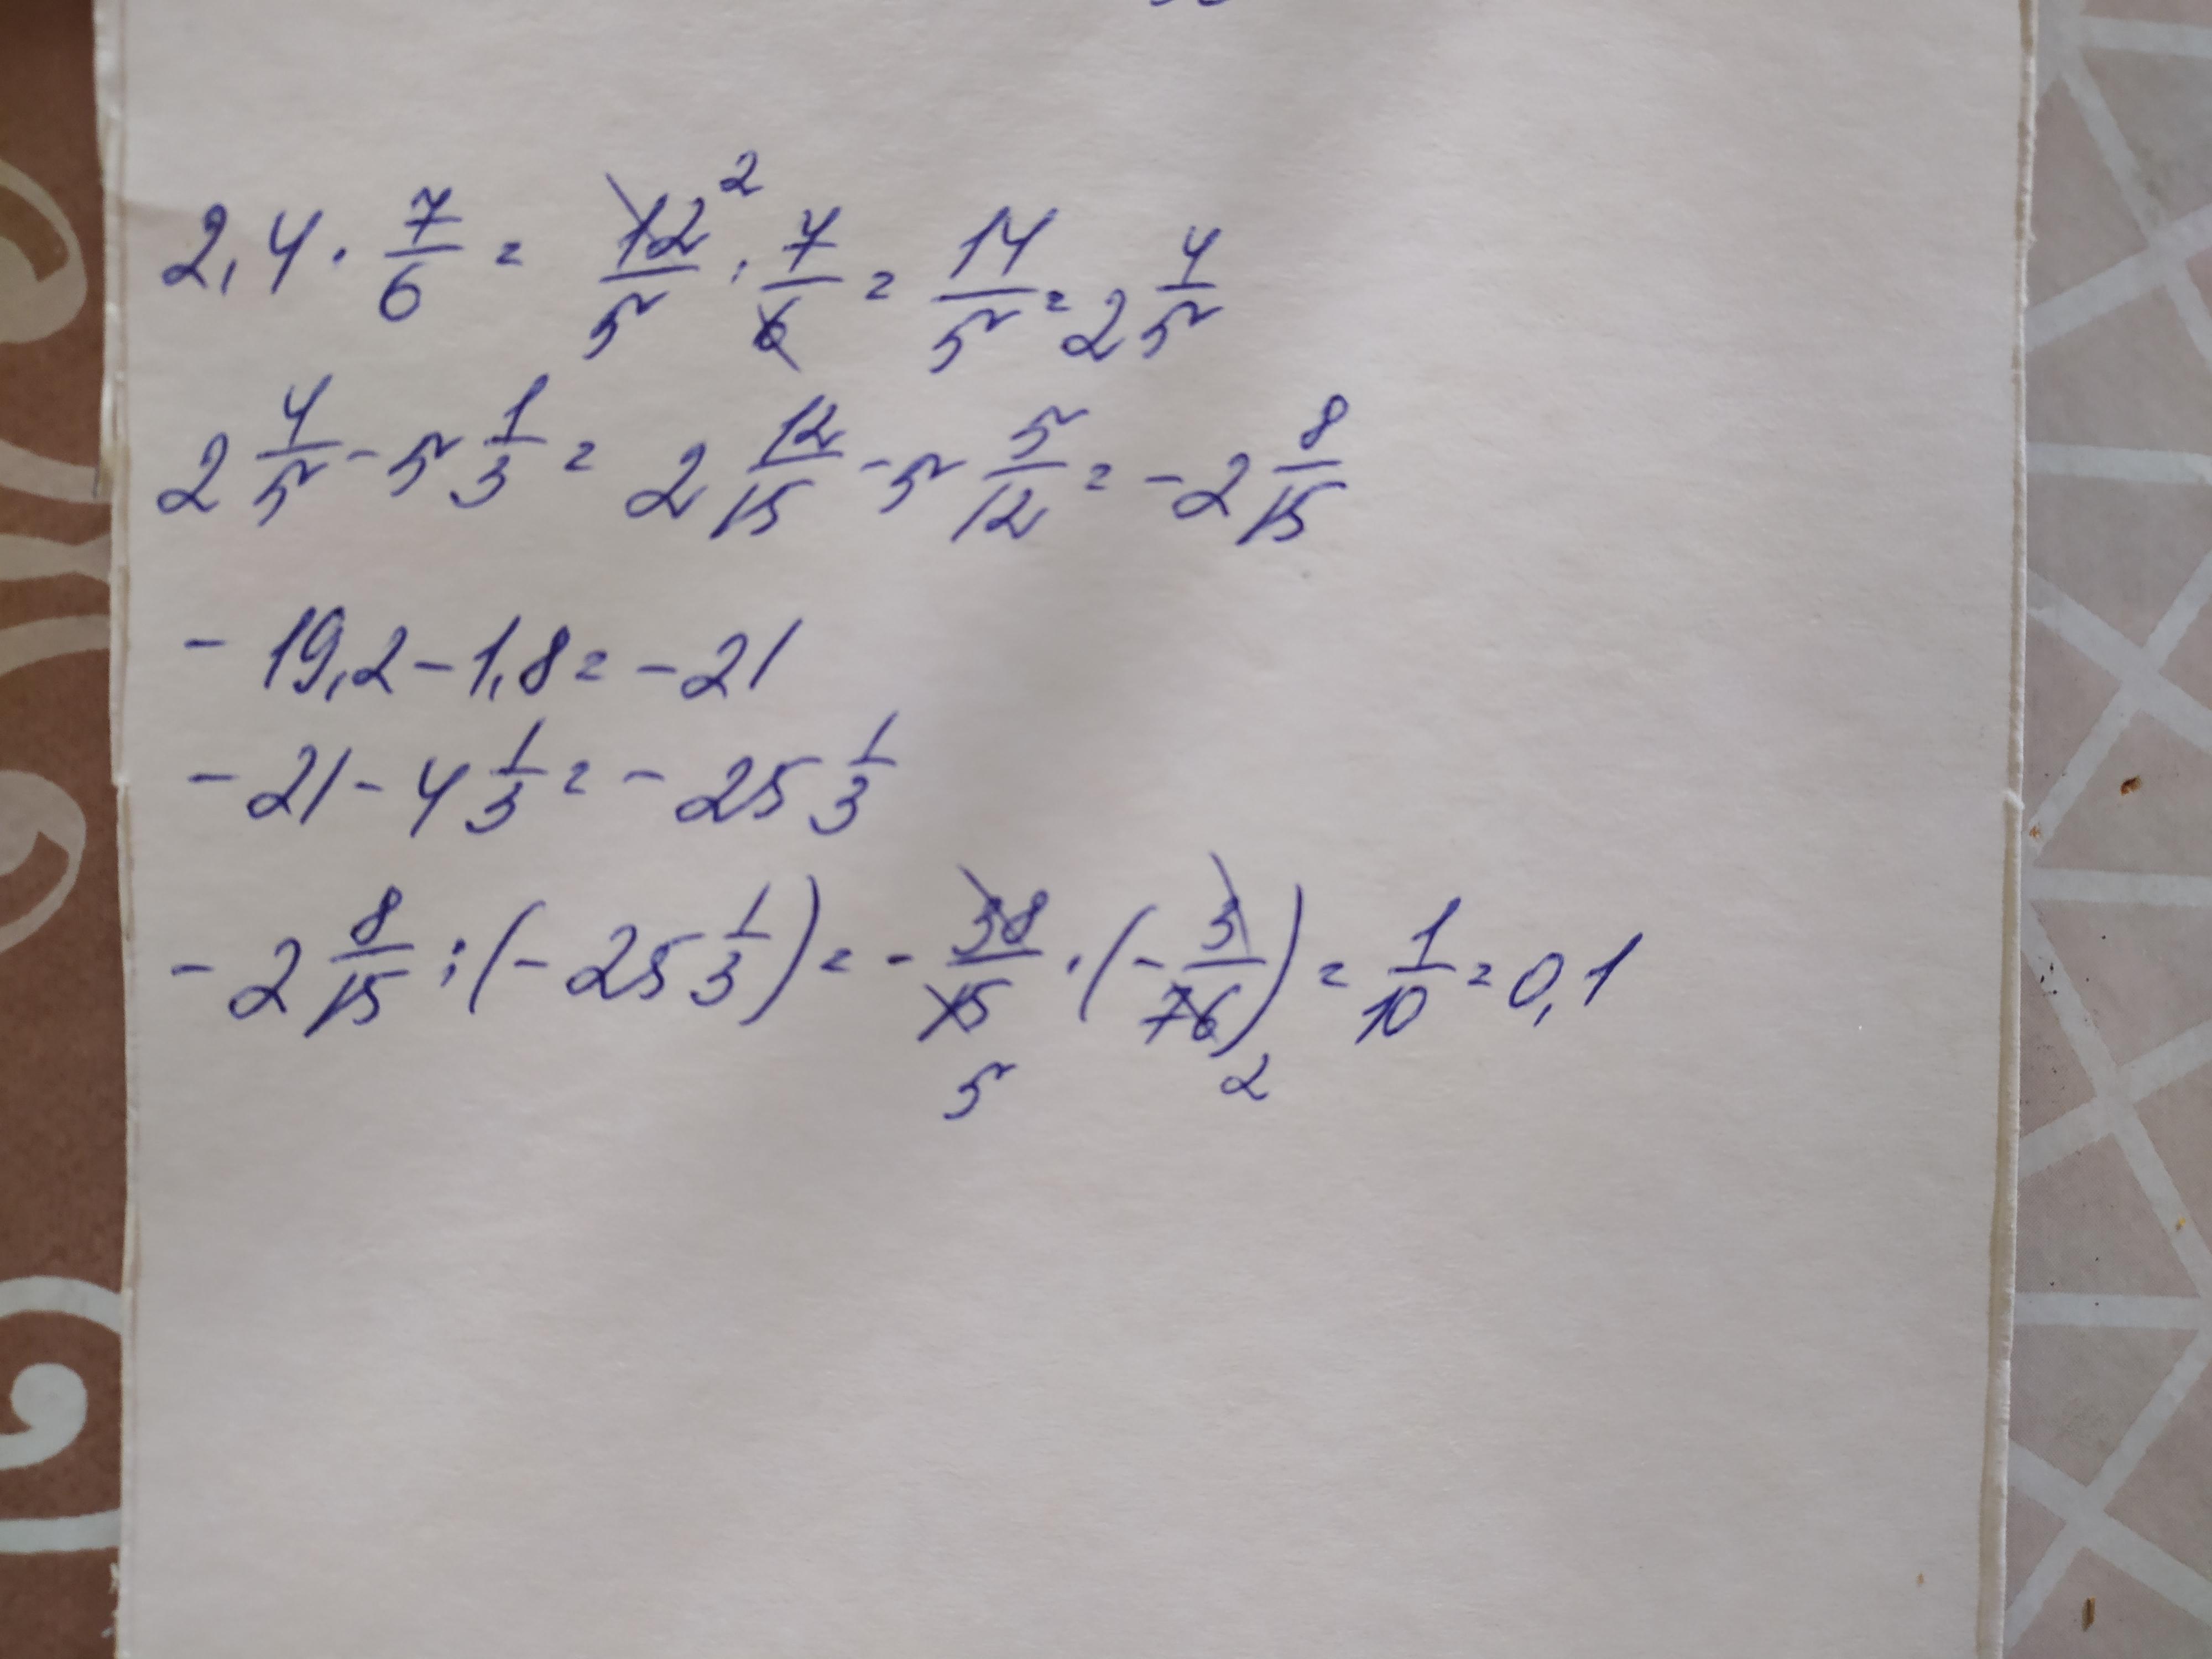 2,4 · 7/6 = 12/5 · 7/6 = 14/5 = 2 4/5
2
2 4/5 - 5 1/3 = 2 12/15 - 5 5/12 = -2 8/15
- 19,2 - 1,8 = - 21
- 21 - 4 1/3 = - 25 1/3
- 2 8/15 : (- 25 1/3) = - 38/15 · (- 3/76) = 1/10 = 0,1
5 2